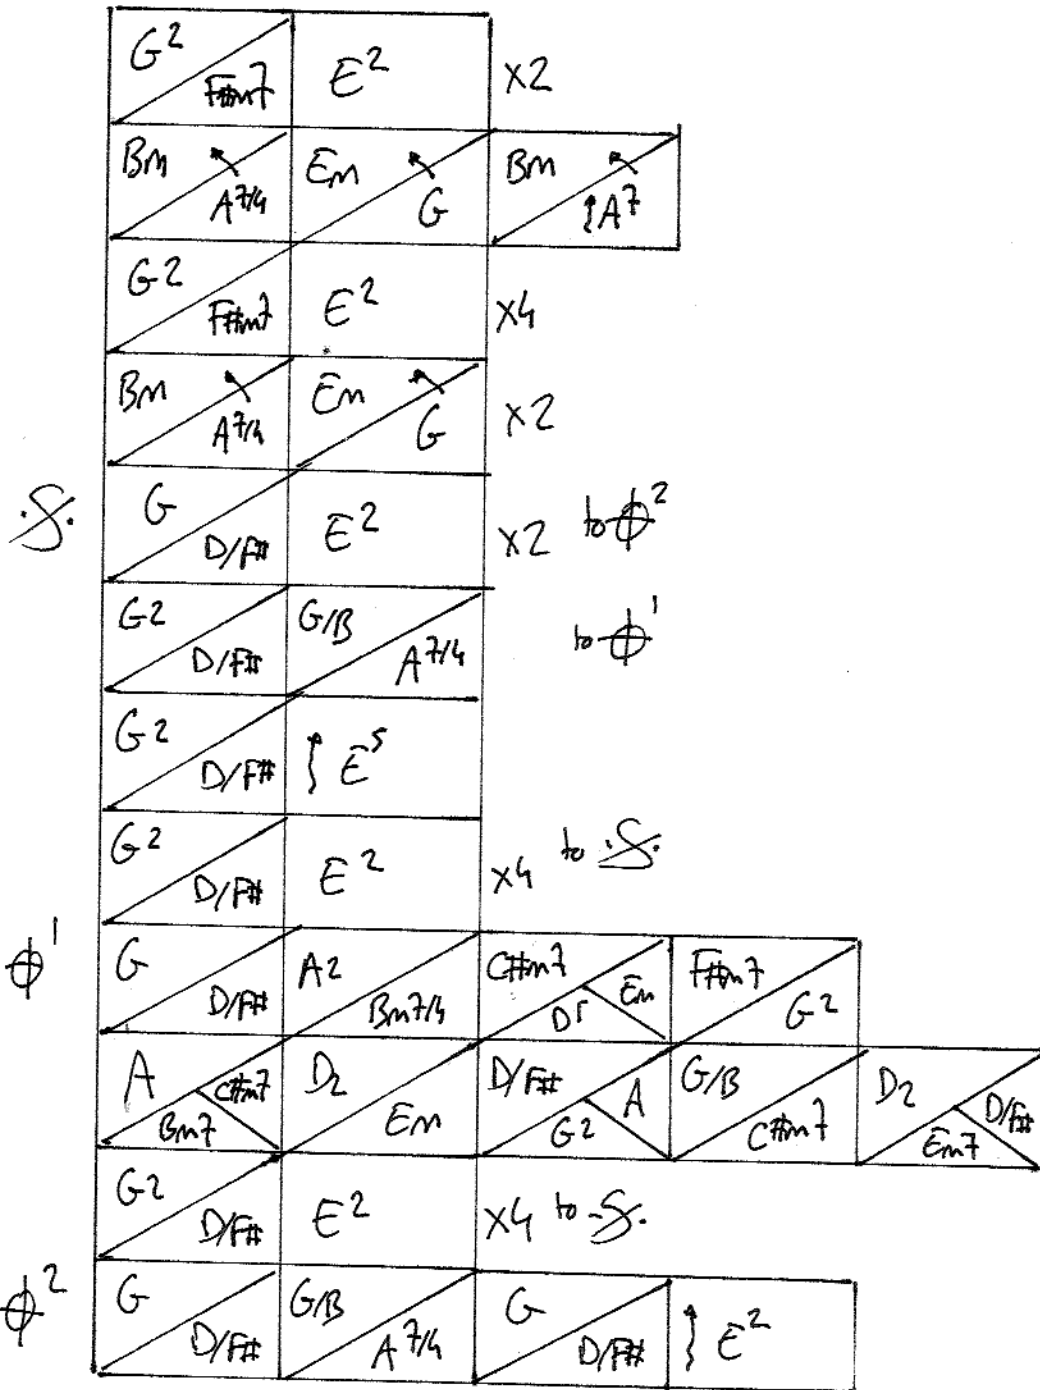 G2 F#m7 E2 x2
Bm A7/4 Em G Bm A7
G2 F#m7 E2 x4
Bm A7/4 Em G x2
G D/F# E2 x2 to 𝄌2
G2 D/F# G/B A7/4 to 𝄌1
G2 D/F# E5
G2 D/F# E2 x4 to 𝄋
𝄌1 G D/F# A2 Bm7/4 C#m7 D5 Em F#m7 G2
A Bm7 C#m7 D2 Em D/F# G2 A G/B C#m7 D2 Em7 D/F#
G2 D/F# E2 x4 to 𝄋
𝄌2 G D/F# G/B A7/4 G D/F# E2